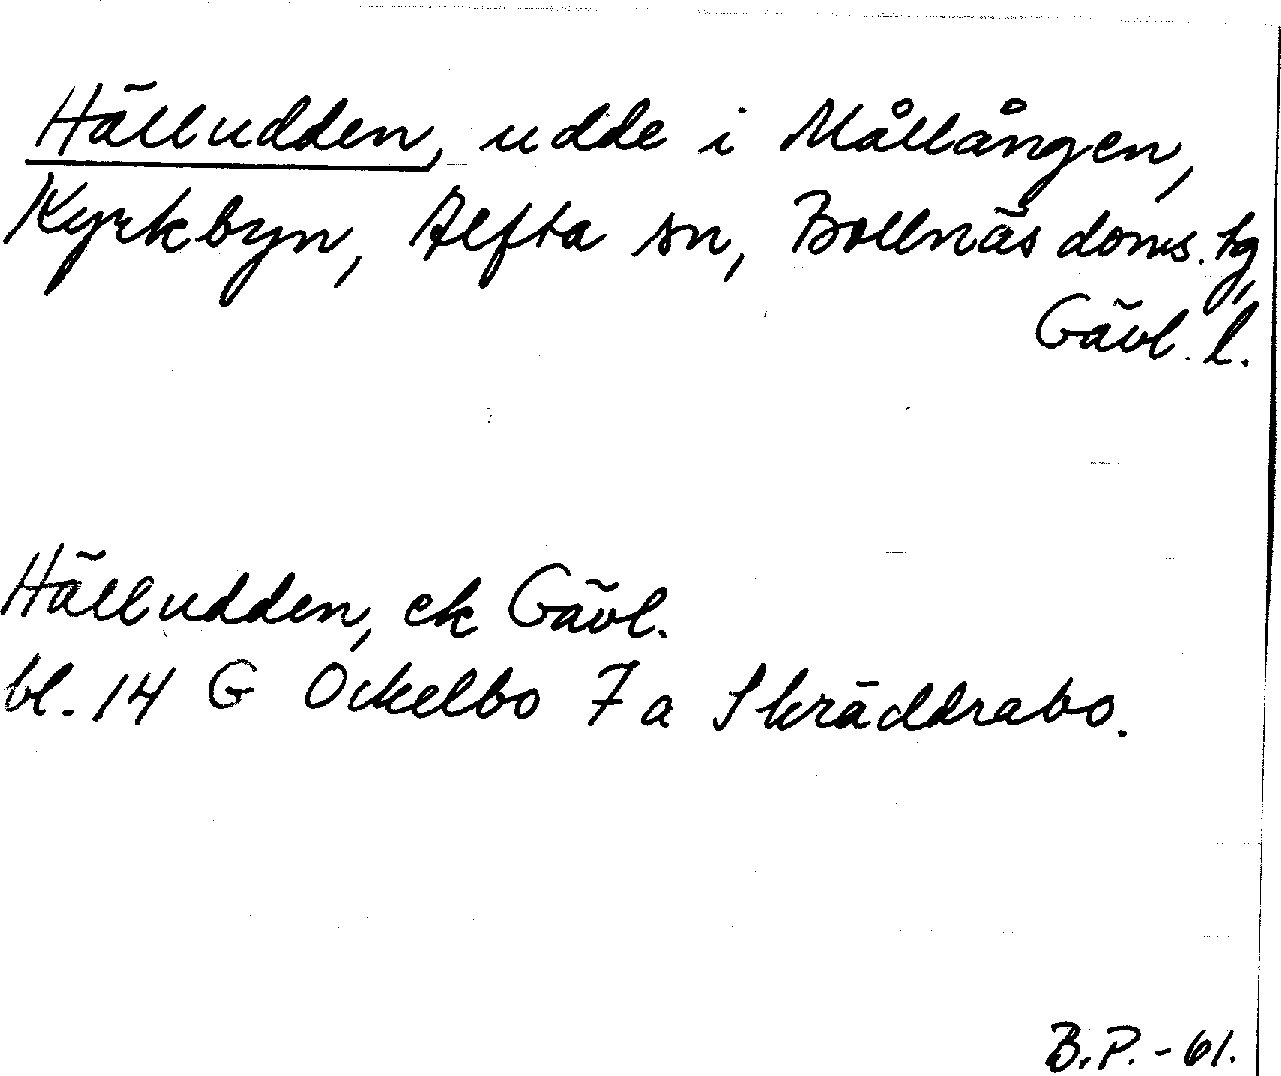 Hälludden, udde i Mållången,
Kyrkbyn, Alfta sn, Bollnäs doms. tg,
Gävl. l.
Hälludden, ek Gävl.
bl. 14 G Ockelbo 7 a Skräddrabo.
B.P. - 61.